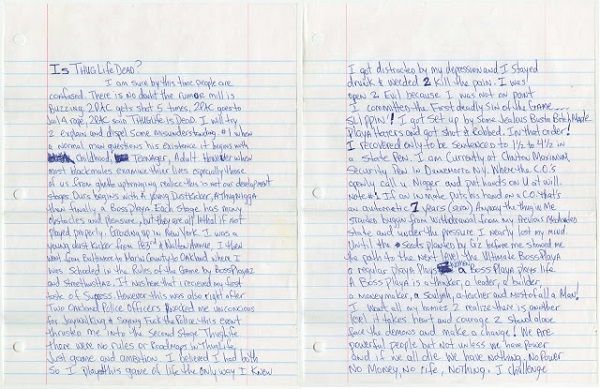 Is THUG Life DEAD?
I am sure by this time people are
confused. There is no doubt the rumor mill is
Buzzing. 2PAC gets shot 5 times, 2PAC goes to
Jail 4 rape, 2PAC said THUG Life is DEAD. I will try
2 explain and dispel some misunderstanding. #1 when
a normal man questions his existence it begins with
Childhood, Teenager, Adult. However when
most black males examine their lives especially those
of us from ghetto upbringing realize this is not our development
stages. Ours begins with a Young Dust Kicker, A Thug Nigga
then finally a Boss Playa. Each stage has many
obstacles and pleasure, but they are all lethal if not
played properly. Growing up in New York I was a
young dust kicker from 183rd & Walton Avenue, I then
went from Baltimore to Marin County to Oakland where I
was schooled in the Rules of the Game by Boss Playaz
and Streethustlaz. It was here that I received my first
taste of Success. However this was also right after
Two Oakland Police Officers knocked me unconscious
for Jaywalking & Saying Fuck the Police. This event
thrusted me into the second Stage Thuglife
there were no rules or Roadmaps in Thug Life,
Just game and ambition. I believed I had both
So I played this game of life the only way I knew
I got distracted by my depression and I stayed
drunk & weeded 2 kill the pain. I was
open 2 Evil because I was not on point
I committed the First deadly Sin of the Game....
SLIPPIN'! I got Set up by Some Jealous Busta Bitch Made
Playa Haters and got shot & Robbed. In that order!
I recovered only to be Sentenced to 1 1/2 to 4 1/2 in
a State Pen. I am Currently at Clinton Maximum
Security Pen in Dannemora N.Y. Where the C.O.'s
openly call u Nigger and put hands on U at will.
Note #1 If an inmate puts his hand on a C.O. that's
an automatic 7 years (SHU). Anyway the thug in me
started
from withdrawal from my previous
state and under the pressure I nearly lost my mind.
Until the seeds planted by Gz before me showed me
the path to the next level the Ultimate Boss Playa
a regular playa plays a Boss Playa plays life.
A Boss Playa is a thinker, a leader, a builder,
a moneymaker, a Souljah, a teacher and most of all a Man!
I want all my homiez 2 realize there is another
level it takes heart and courage 2 stand alone
face the demons and make a change! We Are
powerful people but not unless we have power
and if we all die we have nothing. No Power
No Money, No life, Nothing. I challenge